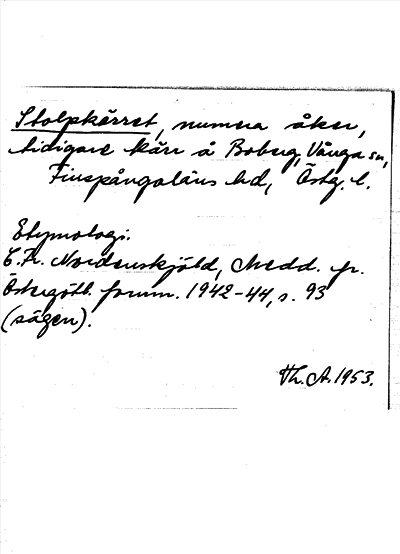 Stolpkärret, numera åker,
tidigare kärr å Boberg, Vånga sn,
Finspångaläns hd, Östg. l.
Etymologi.
C. Fr. Nordenskjöld, Medd. fr.
Östergötl. fornm. 1942-44, s. 93
(sägen).
Th. A. 1953.